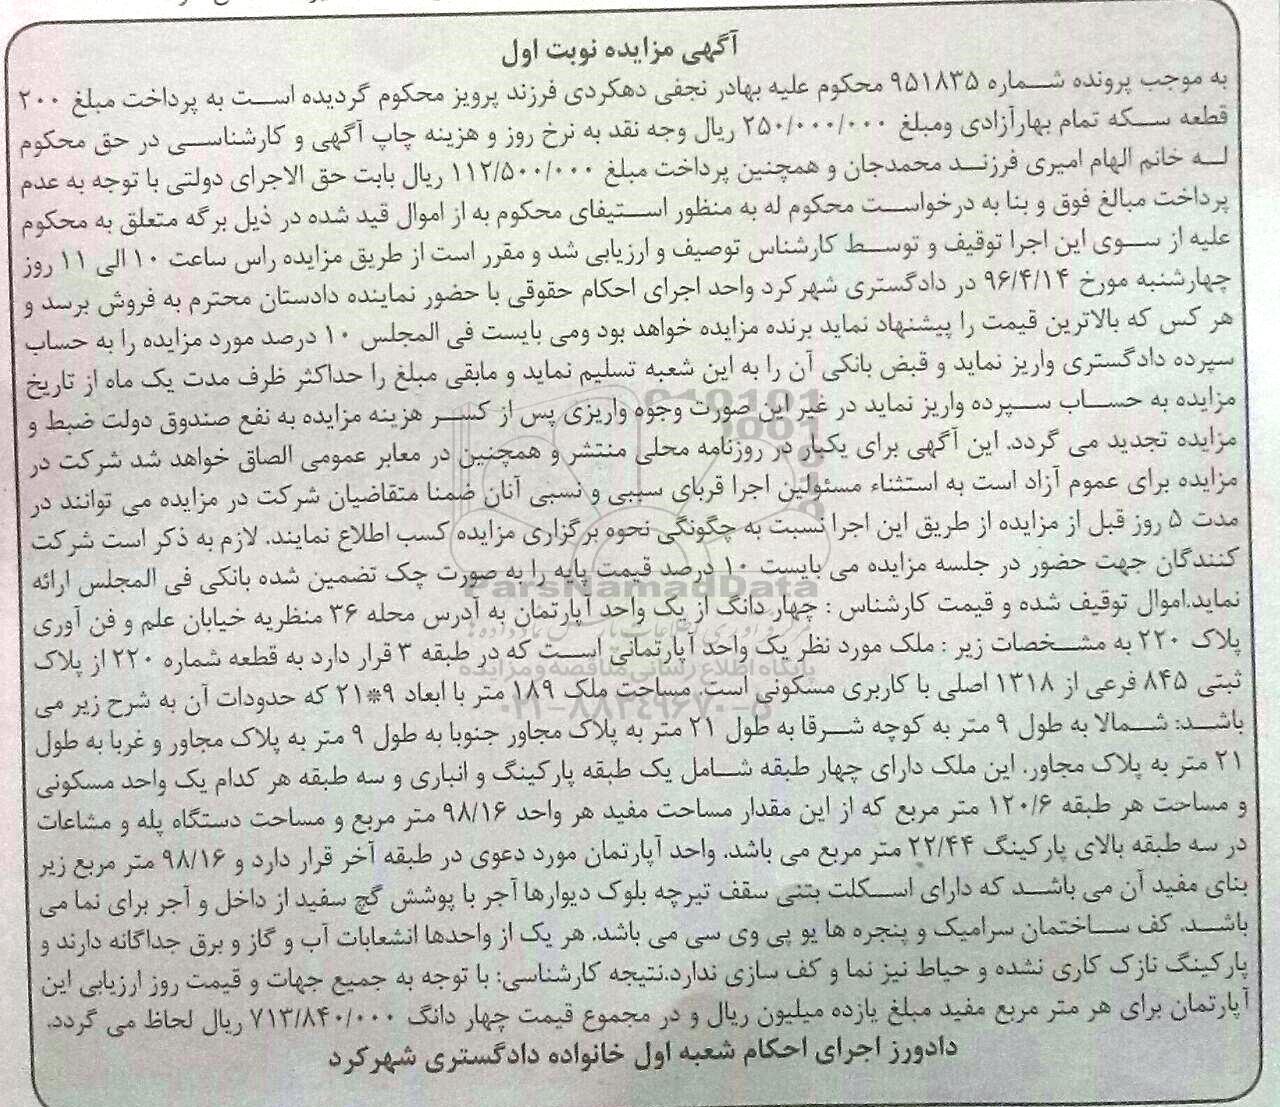 آگهی مزایده نوبت اول
به موجب پرونده شماره ۹۵۱۸۳۵ محکوم علیه بهادر نجفی دهکردی فرزند پرویز محکوم گردیده است به پرداخت مبلغ ۲۰۰
قطعه سکه تمام بهارآزادی ومبلغ ۲۵۰/۰۰۰/۰۰۰ ریال وجه نقد به نرخ روز و هزینه چاپ آگهی و کارشناسی در حق محکوم
له خانم الهام امیری فرزند محمدجان و همچنین پرداخت مبلغ ۱۱۲/۵۰۰/۰۰۰ ریال بابت حق الاجرای دولتی با توجه به عدم
پرداخت مبالغ فوق و بنا به درخواست محکوم له به منظور استیفای محکوم به از اموال قید شده در ذیل برگه متعلق به محکوم
علیه از سوی این اجرا توقیف و توسط کارشناس توصیف و ارزیابی شد و مقرر است از طریق مزایده راس ساعت ۱۰ الی ۱۱ روز
چهارشنبه مورخ ۹۶/۴/۱۴ در دادگستری شهرکرد واحد اجرای احکام حقوقی با حضور نماینده دادستان محترم به فروش برسد و
هر کس که بالاترین قیمت را پیشنهاد نماید برنده مزایده خواهد بود ومی بایست فی المجلس ۱۰ درصد مورد مزایده را به حساب
سپرده دادگستری واریز نماید و قبض بانکی آن را به این شعبه تسلیم نماید و مابقی مبلغ را حداکثر ظرف مدت یک ماه از تاریخ
مزایده به حساب سپرده واریز نماید در غیر این صورت وجوه واریزی پس از کسر هزینه مزایده به نفع صندوق دولت ضبط و
مزایده تجدید می گردد. این آگهی برای یکبار در روزنامه محلی منتشر و همچنین در معابر عمومی الصاق خواهد شد شرکت در
مزایده برای عموم آزاد است به استثناء مسئولین اجرا قربای سببی و نسبی آنان ضمنا متقاضیان شرکت در مزایده می توانند در
مدت ۵ روز قبل از مزایده از طریق این اجرا نسبت به چگونگی نحوه برگزاری مزایده کسب اطلاع نمایند. لازم به ذکر است شرکت
کنندگان جهت حضور در جلسه مزایده می بایست ۱۰ درصد قیمت پایه را به صورت چک تضمین شده بانکی فی المجلس ارائه
ParsNamadData
نماید.اموال توقیف شده و قیمت کارشناس : چهار دانگ از یک واحد آپارتمان به آدرس محله ۳۶ منظریه خیابان علم و فن آوری
پلاک ۲۲۰ به مشخصات زیر : ملک مورد نظر یک واحد آپارتمانی است که در طبقه ۳ قرار دارد به قطعه شماره ۲۲۰ از پلاک
پایگاه اطلاع رسانی مناقصه و مزایده
ثبتی ۸۴۵ فرعی از ۱۳۱۸ اصلی با کاربری مسکونی است. مساحت ملک ۱۸۹ متر با ابعاد ۹*۲۱ که حدودات آن به شرح زیر می
۰۲۱-۸۸۳٤۹٦۷۰-۵
باشد: شمالا به طول ۹ متر به کوچه شرقا به طول ۲۱ متر به پلاک مجاور جنوبا به طول ۹ متر به پلاک مجاور و غربا به طول
۲۱ متر به پلاک مجاور. این ملک دارای چهار طبقه شامل یک طبقه پارکینگ و انباری و سه طبقه هر کدام یک واحد مسکونی
و مساحت هر طبقه ۱۲۰/۶ متر مربع که از این مقدار مساحت مفید هر واحد ۹۸/۱۶ متر مربع و مساحت دستگاه پله و مشاعات
در سه طبقه بالای پارکینگ ۲۲/۴۴ متر مربع می باشد. واحد آپارتمان مورد دعوی در طبقه آخر قرار دارد و ۹۸/۱۶ متر مربع زیر
بنای مفید آن می باشد که دارای اسکلت بتنی سقف تیرچه بلوک دیوارها آجر با پوشش گچ سفید از داخل و آجر برای نما می
باشد. کف ساختمان سرامیک و پنجره ها یو پی وی سی می باشد. هر یک از واحدها انشعابات آب و گاز و برق جداگانه دارند و
پارکینگ نازک کاری نشده و حیاط نیز نما و کف سازی ندارد.نتیجه کارشناسی: با توجه به جمیع جهات و قیمت روز ارزیابی این
آپارتمان برای هر متر مربع مفید مبلغ یازده میلیون ریال و در مجموع قیمت چهار دانگ ۷۱۳/۸۴۰/۰۰۰ ریال لحاظ می گردد.
دادورز اجرای احکام شعبه اول خانواده دادگستری شهرکرد